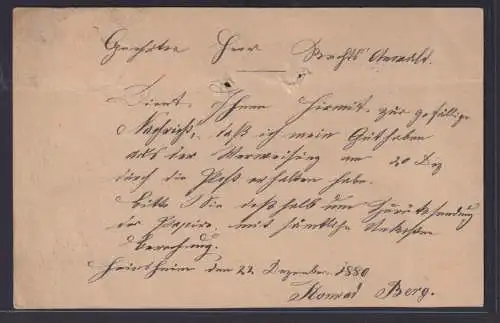 Geehrter Herr Rechts Anwald.
Dient Ihnen hiermit zur gefällige
Nachricht, daß ich mein Guthaben
aus der Verweisung am 20 Dez
durch die Post erhalten habe.
bitte Sie deßhalb um Zurücksendung
der Papire, mit sämtliche Unkosten
Berechnung.
den 22. Dezember 1880
Konrad Berg.